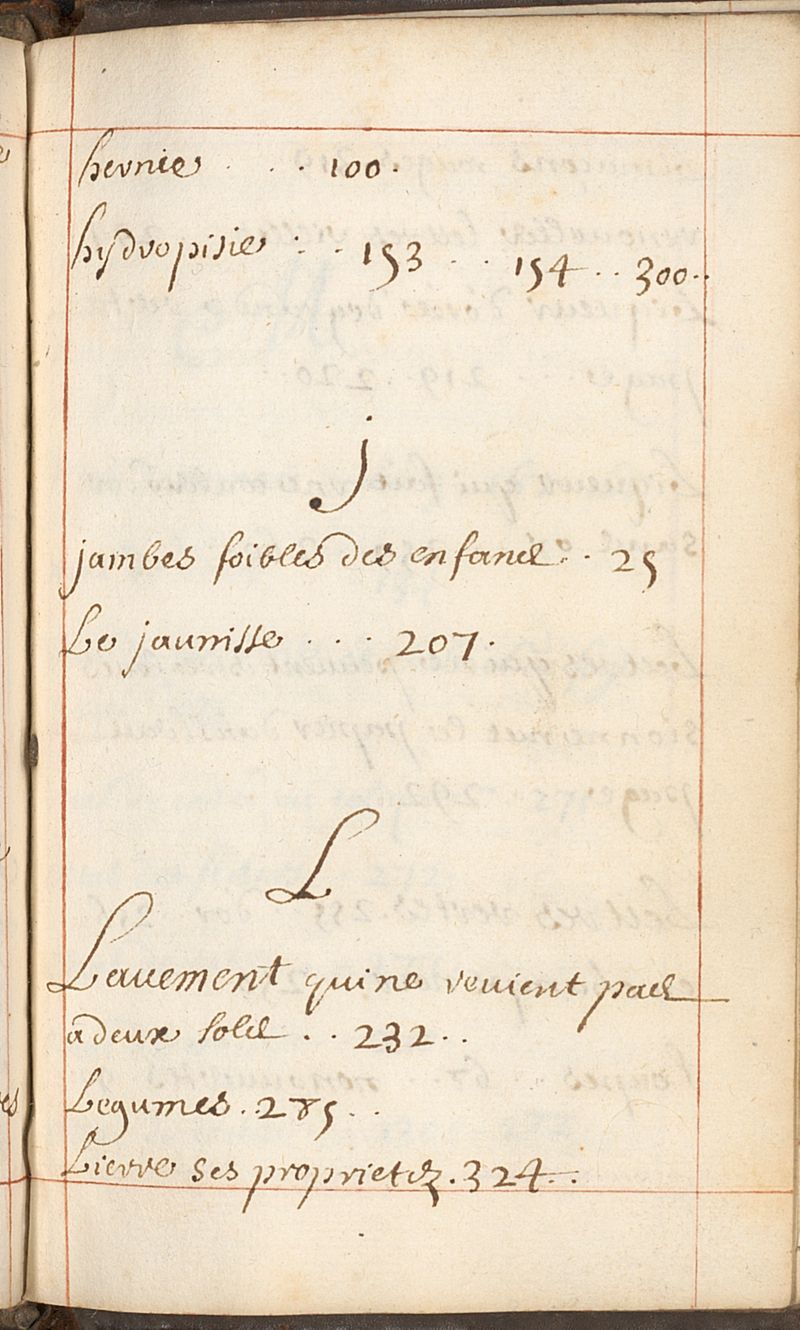 hernie . . . 100.
hydropisie . . . 153 . . 154 . . 300..
j
jambes foibles des enfans . . 25
Le jaunisse . . . 207.
L
Lauement qui ne reuient pas
a deux sols . . 232 . .
Legumes . 285 . .
Lierre ses proprietez . 324 . .